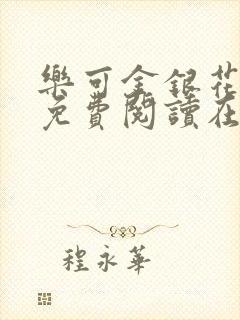 樂可金銀花
免費閱讀在
程永華